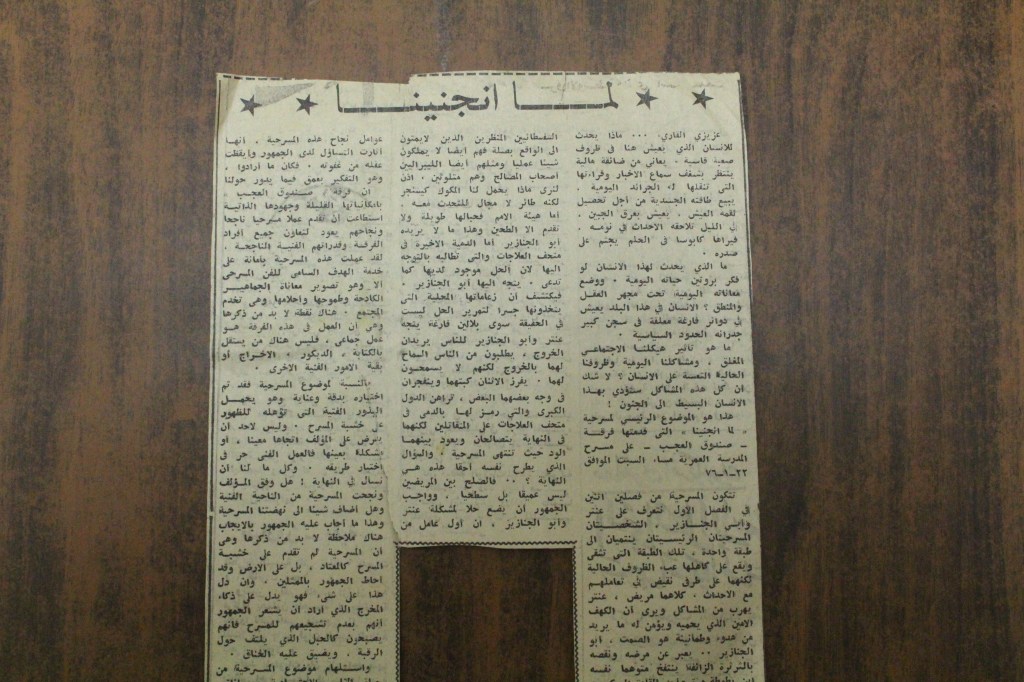 لمـــا انجنينـــا
عزيزي القاريء ... ماذا يحدث
للانسان الذي يعيش هنا في ظروف
صعبة قاسية . يعاني من ضائقة مالية
ينتظر بشغف سماع الاخبار وقراءتها
التي تنقلها له الجرائد اليومية .
يبيع طاقته الجسدية من أجل تحصيل
لقمة العيش . يعيش بعرق الجبين .
في الليل تلاحقه الاحداث في نومه .
فيراها كابوسا في الحلم يجثم على
صدره .
ما الذي يحدث لهذا الانسان لو
فكر بروتين حياته اليومية . ووضع
معاناته اليومية تحت مجهر العقل
والمنطق ؟ الانسان في هذا البلد يعيش
في دوائر فارغة مغلقة في سجن كبير
جدرانه الحدود السياسية .
ما هو تأثير هيكلنا الاجتماعي
المغلق . ومشاكلنا اليومية وظروفنا
الحالية التعسة على الانسان ؟ لا شك
ان كل هذه المشاكل ستؤدي بهذا
الانسان البسيط الى الجنون !
هذا هو الموضوع الرئيسي لمسرحية
« لما انجنينا » التي قدمتها فرقة
ـ صندوق العجب ـ على مسرح
المدرسة العمرية مساء السبت الموافق
٢٢ـ١ـ٧٦
تتكون المسرحية من فصلين اثنين
في الفصل الاول نتعرف على عنتر
وأبي الجنازير . الشخصيتان
المسرحيتان الرئيسيتان ينتميان الى
طبقة واحدة ، تلك الطبقة التي تشقى
ويقع على كاهلها عبء الظروف الحالية
لكنهما على طرفي نقيض في تعاملهم
مع الاحداث . كلاهما مريض ، عنتر
يهرب من المشاكل ويرى أن الكهف
الامين الذي يحميه ويؤمن له ما يريد
من هدوء وطمأنينة هو الصمت . أبو
الجنازير .. يعبر عن مرضه ونقصه
بالثرثرة الزائفة ينتفخ متوهما نفسه
النفسطائيين المنظرين الذين لايمتون
الى الواقع بصلة فهم ايضا لا يملكون
شيئا عمليا ومثلهم ايضا الليبراليين
اصحاب المصالح وهم متلونين . اذن
لنرى ماذا يحمل لنا المكوك كيسنجر
لكنه طائر لا مجال للتحدث معه .
أما هيئة الامم فحبالها طويلة ولا
تقدم الا الطحين وهذا ما لا يريده
أبو الجنازير أما الدمية الاخيرة في
متحف العلاجات والتي تطالبه بالتوجه
اليها لان الحل موجود لديها كما
تدعى . يتجه اليها أبو الجنازير .
فيكتشف ان زعاماتها المحلية التي
يتخذونها جسرا لتمرير الحل ليست
في الحقيقة سوى بلالين فارغة يتجه
عنتر وأبو الجنازير للناس يريدان
الخروج . يطلبون من الناس السماح
لهما بالخروج لكنهم لا يسمحون
لهما . يفرز الاثنان كبتهما وينفجران
في وجه بعضهما البعض . تراهن الدول
الكبرى والتي رمز لها بالدمى في
متحف العلاجات على المتقاتلين لكنهما
في النهاية يتصالحان ويعود بينهما
الود حيث تنتهي المسرحية . والسؤال
الذي يطرح نفسه أحقا هذه هي
النهاية ؟ .. فالصلح بين المريضين
ليس عميقا بل سطحيا . وواجب
الجمهور ان يضع حلا لمشكلة عنتر
وأبو الجنازير . ان أول عامل من
عوامل نجاح هذه المسرحية . انها
أثارت التساؤل لدى الجمهور وأيقظت
عقله من غفوته . فكان ما أرادوا .
وهو التفكير بعمق فيما يدور حولنا
ان فرقة « صندوق العجب »
بامكاناتها القليلة وجهودها الذاتية
استطاعت ان تقدم عملا مسرحيا ناجحا
ونجاحهم يعود لتعاون جميع أفراد
الفرقة وقدراتهم الفنية الناجحة .
لقد عملت هذه المسرحية بأمانة على
خدمة الهدف السامي للفن المسرحي
الا وهو تصوير معاناة الجماهير
الكادحة وطموحها واحلامها وهي تخدم
المجتمع . هناك نقطة لا بد من ذكرها
وهي ان العمل في هذه الفرقة هو
عمل جماعي . فليس هناك من يستقل
بالكتابة ، الديكور . الاخراج أو
بقية الامور الفنية الاخرى .
بالنسبة لموضوع المسرحية فقد تم
اختياره بدقة وعناية وهو يحمل
البذور الفنية التي تؤهله للظهور
على خشبة المسرح . وليس لاحد ان
يفرض على المؤلف اتجاها معينا ، أو
مشكلة بعينها فالعمل الفني حر في
اختيار طريقه . وكل ما لنا ان
نسأل في النهاية : هل وفق المؤلف
ونجحت المسرحية من الناحية الفنية
وهل أضاف شيئا الى نهضتنا المسرحية
وهذا ما أجاب عليه الجمهور بالايجاب
هناك ملاحظة لا بد من ذكرها وهي
ان المسرحية لم تقدم على خشبة
المسرح كالمعتاد ، بل على الارض وقد
أحاط الجمهور بالممثلين . وان دل
هذا على شيء فهو يدل على ذكاء
المخرج الذي أراد ان يشعر الجمهور
أنهم بعدم تشجيعهم للمسرح فانهم
يصبحون كالحبل الذي يلتف حول
الرقبة . ويضيق عليه الخناق .
واستلهام موضوع المسرحية من